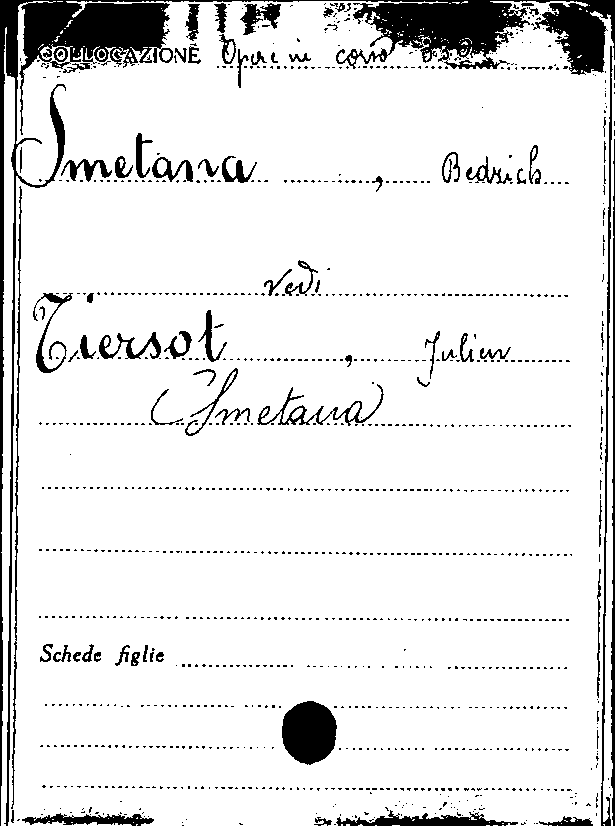 COLLOCAZIONE Opere in corso
Smetana , Bedrich
vedi
Tiersot , Julien
Smetana
Schede figlie